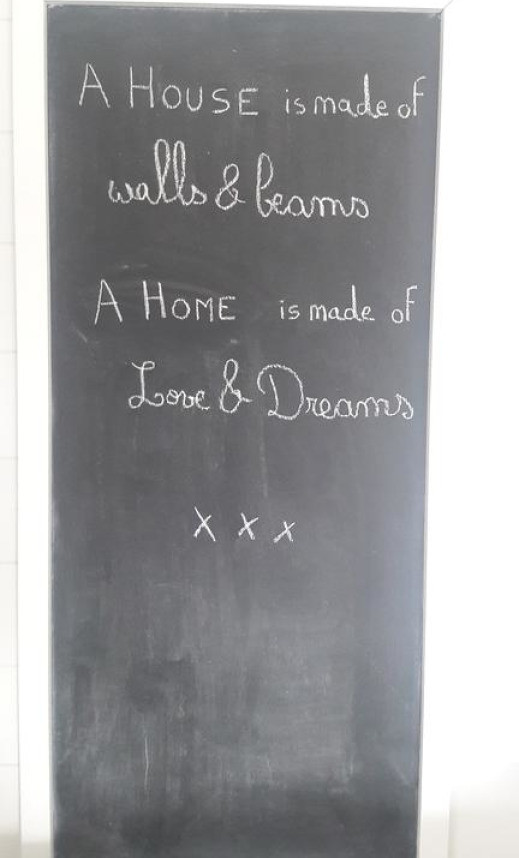 A HOUSE is made of
walls & beams
A HOME is made of
Love & Dreams
x x x